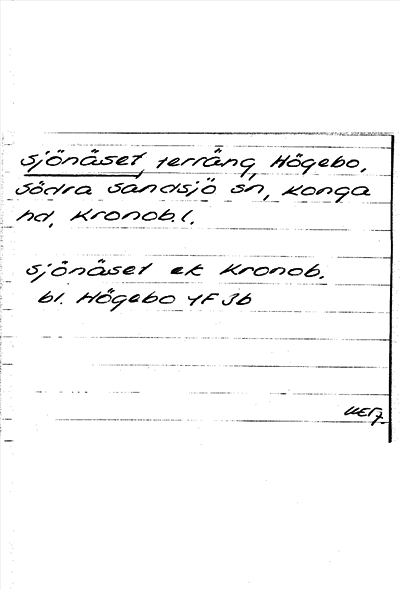 Sjönäset, terräng, Högebo,
Södra Sandsjö sn, Konga
hd, Kronob.l.
Sjönäset ek Kronob.
bl. Högebo 4F 3b